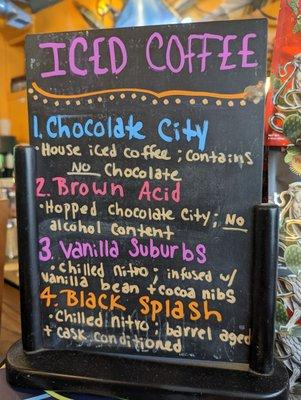 ICED COFFEE
1. Chocolate City
• House iced coffee; contains
NO chocolate
2. Brown Acid
• Hopped Chocolate City; NO
alcohol content
3. Vanilla Suburbs
• chilled nitro; infused w/
vanilla bean + cocoa nibs
4. Black Splash
• Chilled nitro; barrel aged
+ cask conditioned